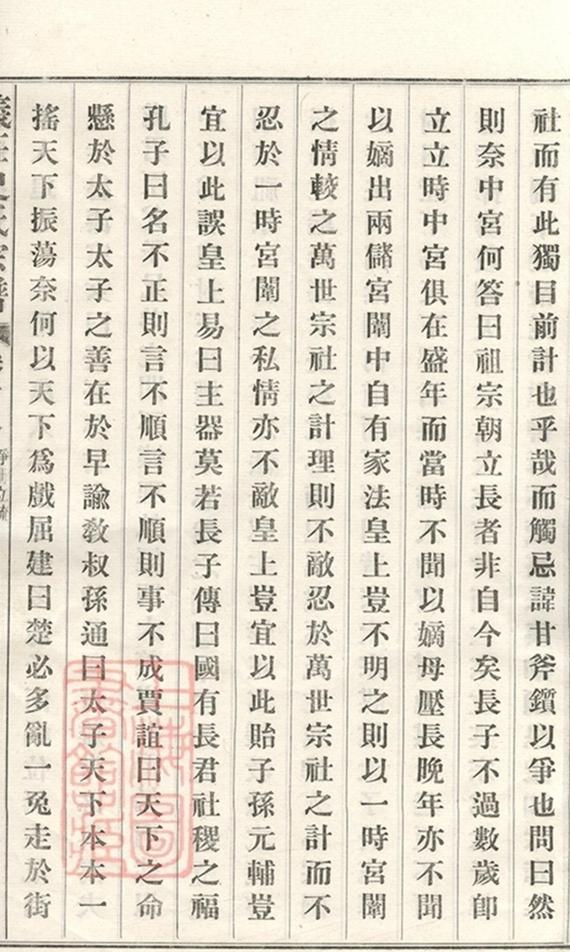 社而有此獨目前計也乎哉而觸忌諱甘斧鑕以爭也問曰然
則奈中宮何答曰祖宗朝立長者非自今矣長子不過數歲卽
立立時中宮俱在盛年而當時不聞以嫡母壓長晚年亦不聞
以嫡出兩儲宮闈中自有家法皇上豈不明之則以一時宮闈
之情較之萬世宗社之計理則不敵忍於萬世宗社之計而不
忍於一時宮闈之私情亦不敵皇上豈宜以此貽子孫元輔豈
宜以此誤皇上易曰主器莫若長子傳曰國有長君社稷之福
孔子曰名不正則言不順言不順則事不成賈誼曰天下之命
懸於太子太子之善在於早諭敎叔孫通曰太子天下本本一
搖天下振蕩奈何以天下爲戲屈建曰楚必多亂一兔走於街